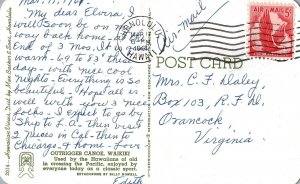 Mar. 17, 1961
My dear Elvira, I
will soon be on my
way back home - the
end of 3 Mos. It is
warm - 83° - this
day - with nice cool
nights - Everything is so
beautiful. Hope all is
well with you & nice
folks. I expect to go by
ship to L.A. then visit
2 nieces in Cal - then to
Chicago, & home. Love
Edith
OUTRIGGER CANOE, WAIKIKI
Used by the Hawaiians of old
in crossing the Pacific, enjoyed by
everyone today as a classic sport.
HONOLULU
MAR
1961
HAWAII
Air-Mail
AIR MAIL 5¢
POST CARD
Mrs. C. F. Daley,
Box 103, R.F.D.
Orancock
Virginia.